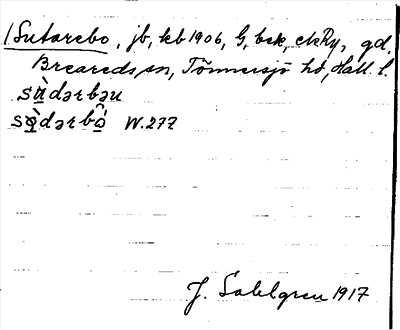 /Sutarebo, jb, kb 1906, G, bek, ekRy, gd.
Breareds sn, Tönnersjö hd, Hall. l.
sù̱dərbəu
sò̱dərbô̱ W.277
J. Sahlgren 1917